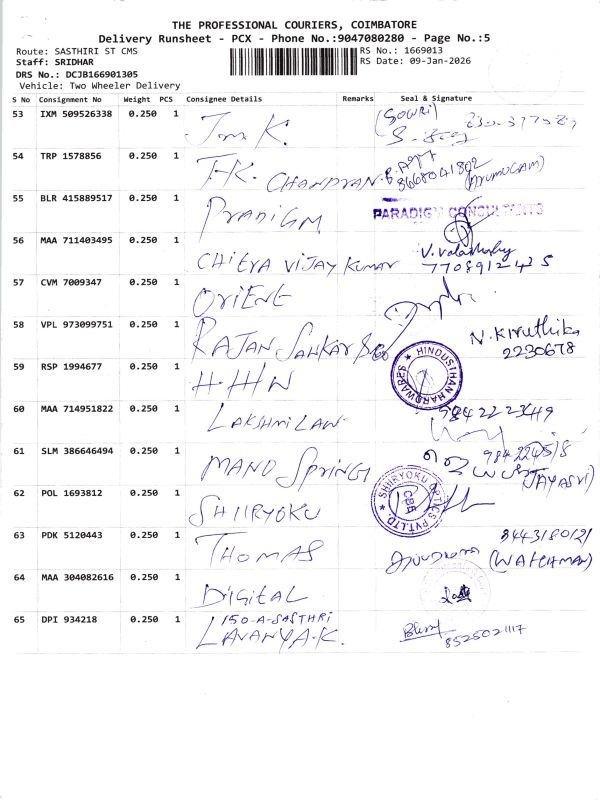 THE PROFESSIONAL COURIERS, COIMBATORE
Delivery Runsheet - PCX - Phone No.:9047080280 - Page No.:5
Route: SASTHIRI ST CMS
RS No.: 1669013
Staff: SRIDHAR
RS Date: 09-Jan-2026
DRS No.: DCJB166901305
Vehicle: Two Wheeler Delivery
S No Consignment No Weight PCS Consignee Details Remarks Seal & Signature
53 IXM 509526338 0.250 1 K. (GOWRI)
54 TRP 1578856 0.250 1 T.K. CHANDRAN 8668041802 (ARUMUGAM)
55 BLR 415889517 0.250 1 PRADIGM PARADIGM CONSULTANTS
56 MAA 711403495 0.250 1 CHITRA VIJAY KUMAR 7708912435
57 CVM 7009347 0.250 1 ORIENT
58 VPL 973099751 0.250 1 RAJAN SANKAR & Co N. Kiruthika
2230678
59 RSP 1994677 0.250 1 H.HW HINDUSTHAN HARDWARES
60 MAA 714951822 0.250 1 LAKSHMI LAW 9842223449
61 SLM 386646494 0.250 1 MANO SPRING (JAYASRI)
62 POL 1693812 0.250 1 SHIIRYOKU SHIIRYOKU OPTICS PVT.LTD. CBE
63 PDK 5120443 0.250 1 THOMAS 8443180121
(WATCHMAN)
64 MAA 304082616 0.250 1 DIGITAL
65 DPI 934218 0.250 1 150-A-SASTHRI
LAVANYA.K. 8525021117